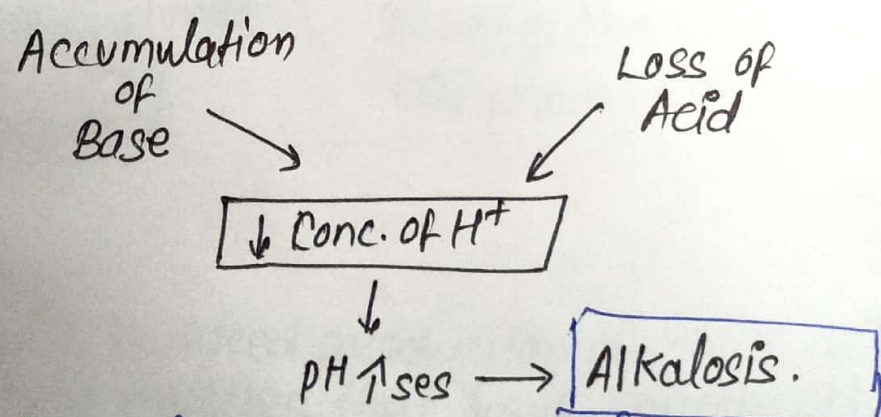 Accumulation
of
Base
Loss of
Acid
↓ Conc. of H+
↓
PH ↑ses → Alkalosis.